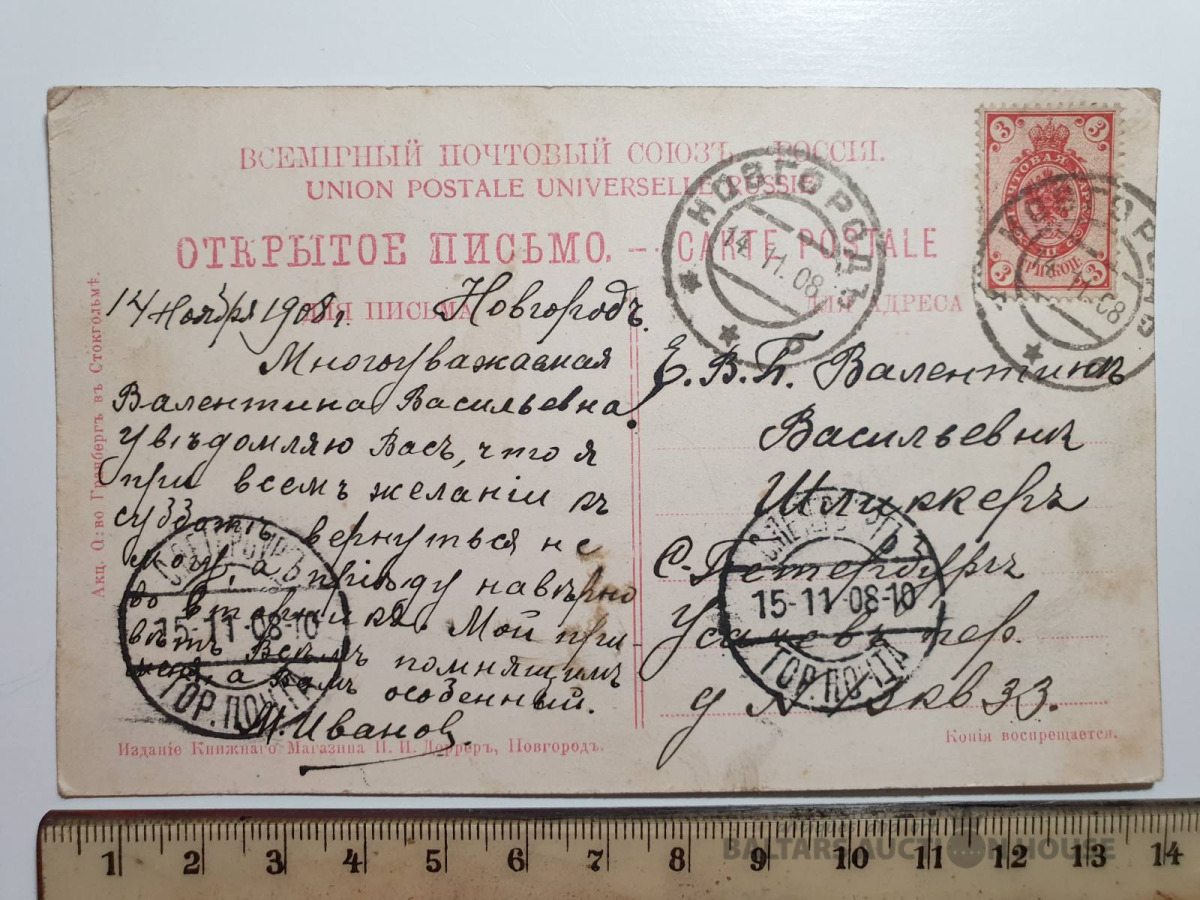 ВСЕМІРНЫЙ ПОЧТОВЫЙ СОЮЗЪ. РОССІЯ.
UNION POSTALE UNIVERSELLE RUSSIE
ОТКРЫТОЕ ПИСЬМО. – CARTE POSTALE
ДЛЯ ПИСЬМА
ДЛЯ АДРЕСА
Акц. О:во Гранбергъ въ Стокгольмѣ.
14 Ноября 1908 г. Новгородъ.
Многоуважаемая
Валентина Васильевна!
Увѣдомляю Васъ, что я
при всемъ желаніи къ
субботѣ вернуться не
могу, а пріѣду навѣрно
во вторникъ. Мой при
вѣтъ Всѣмъ помнящимъ
меня, а Вамъ особенный.
М. Иванов.
Е. В. Б. Валентинѣ
Васильевнѣ
Шликкеръ
С-Петербургъ
Усачовъ пер.
д № кв 33.
Изданіе Книжнаго Магазина П. И. Лоррeръ, Новгородъ.
Копія воспрещается.
НОВГОРОДЪ
14.11.08
б
3
3
ПОЧТОВАЯ МАРКА
ТРИ КОП.
3
3
НОВГОРОДЪ
14.11.08
а
С.ПЕТЕРБУРГЪ
15-11-08-10
ГОР. ПОЧТА
С.ПЕТЕРБУРГЪ
15-11-08-10
ГОР. ПОЧТА
1 2 3 4 5 6 7 8 9 10 11 12 13 14
BALTARS AUCTION HOUSE